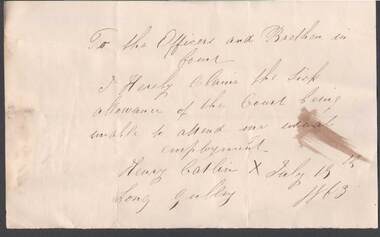 To the Officers and Brethen in
Court
I Hereby Claime the Sick
allowance of the Court being
unable to attend me usual
employment
Henry Catlin X July 15th
Long Gully 1863